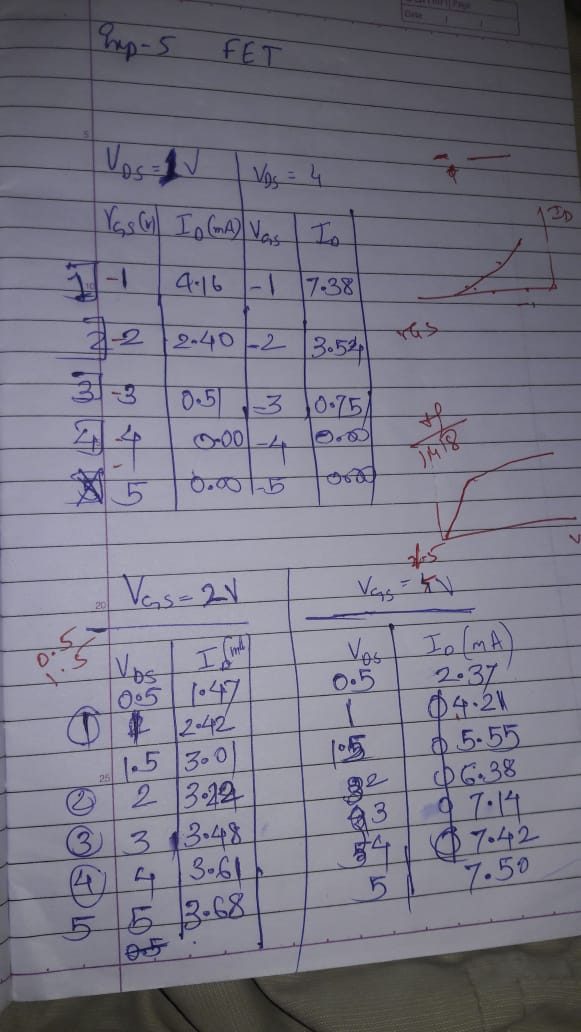 Page
Date
Exp-5 FET
V_DS = 1V V_DS = 4
V_GS (V) I_D (mA) V_GS I_D
1 -1 4.16 -1 7.38
2 -2 2.40 -2 3.54
3 -3 0.51 -3 0.75
4 -4 0.00 -4 0.00
-5 0.00 -5 0.00
I_D
V_GS
V_GS = 2V V_GS = V
0.5
1.5
V_DS I_D (mA) V_DS I_D (mA)
0.5 1.47 0.5 2.37
1 1 2.42 1 4.21
1.5 3.01 1.5 5.55
2 2 3.22 2 6.38
3 3 3.48 3 7.14
4 4 3.61 4 7.42
5 5 3.68 5 7.50
0.5